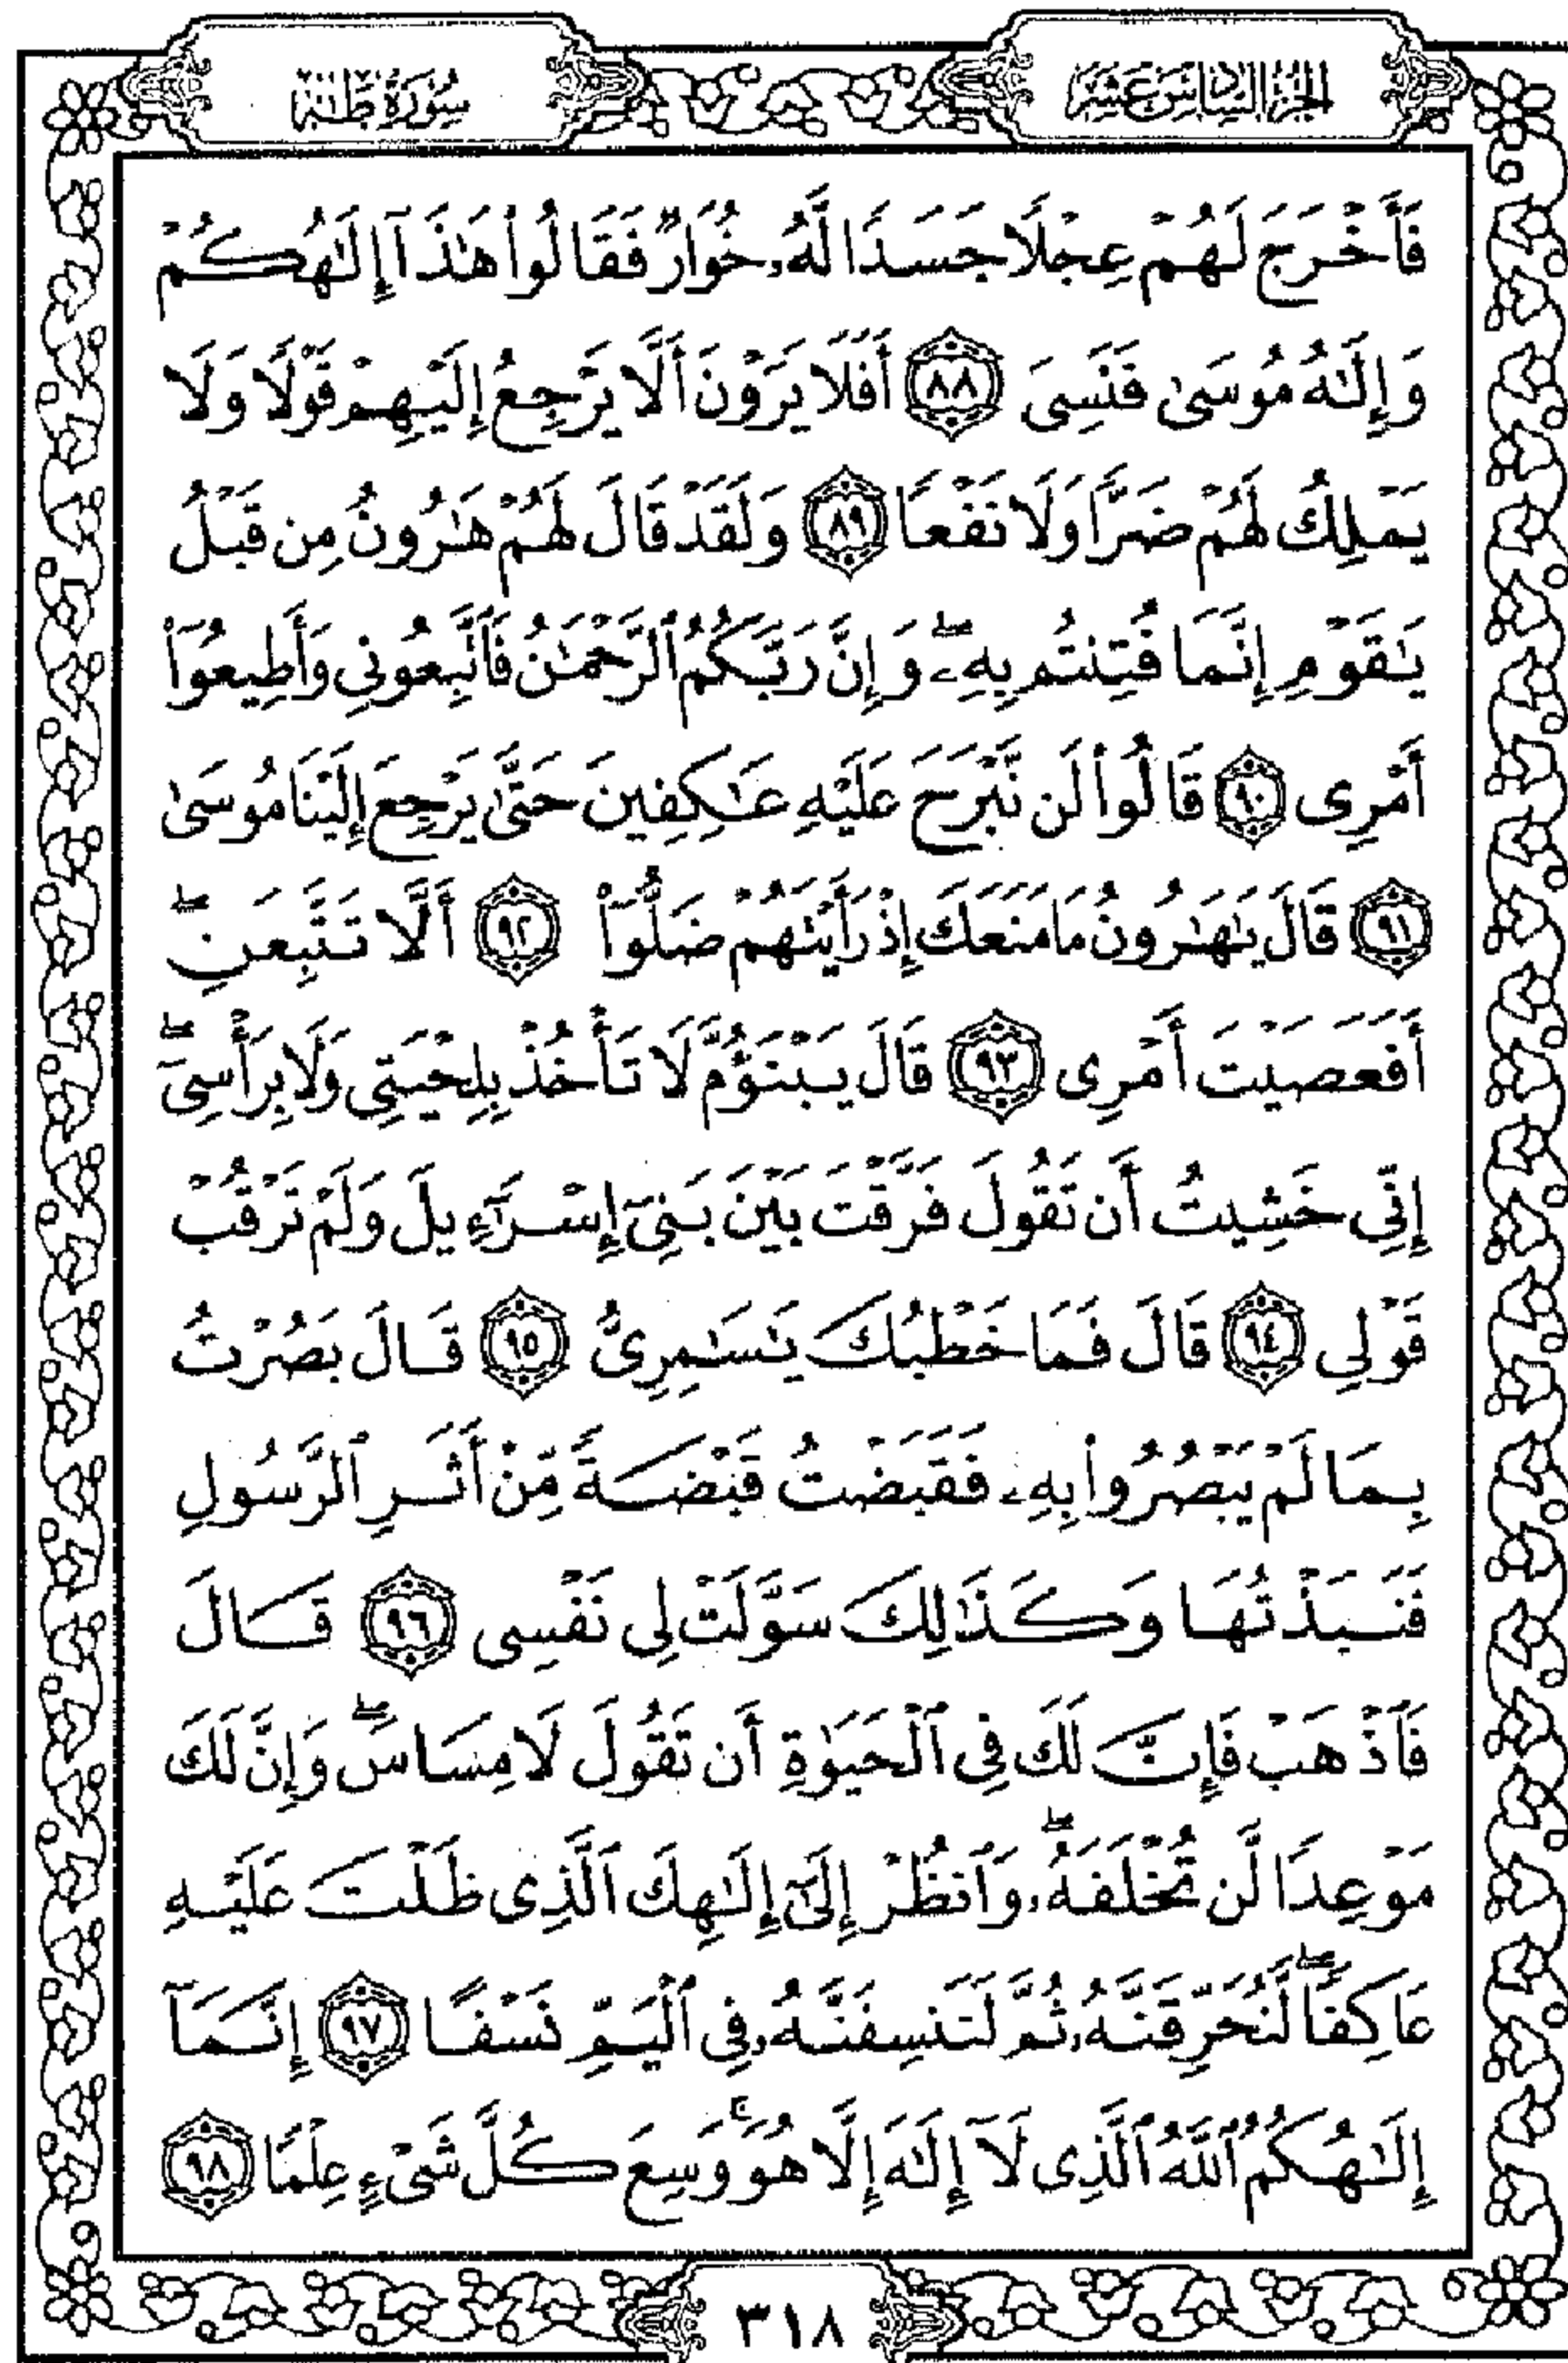 الجزء السادس عشر
سورة طه
فَأَخْرَجَ لَهُمْ عِجْلًا جَسَدًا لَّهُۥ خُوَارٌ فَقَالُوا۟ هَٰذَآ إِلَٰهُكُمْ
وَإِلَٰهُ مُوسَىٰ فَنَسِىَ ٨٨ أَفَلَا يَرَوْنَ أَلَّا يَرْجِعُ إِلَيْهِمْ قَوْلًا وَلَا
يَمْلِكُ لَهُمْ ضَرًّا وَلَا نَفْعًا ٨٩ وَلَقَدْ قَالَ لَهُمْ هَٰرُونُ مِن قَبْلُ
يَٰقَوْمِ إِنَّمَا فُتِنتُم بِهِۦ ۖ وَإِنَّ رَبَّكُمُ ٱلرَّحْمَٰنُ فَٱتَّبِعُونِى وَأَطِيعُوٓا۟
أَمْرِى ٩٠ قَالُوا۟ لَن نَّبْرَحَ عَلَيْهِ عَٰكِفِينَ حَتَّىٰ يَرْجِعَ إِلَيْنَا مُوسَىٰ
٩١ قَالَ يَٰهَٰرُونُ مَا مَنَعَكَ إِذْ رَأَيْتَهُمْ ضَلُّوٓا۟ ٩٢ أَلَّا تَتَّبِعَنِ ۖ
أَفَعَصَيْتَ أَمْرِى ٩٣ قَالَ يَبْنَؤُمَّ لَا تَأْخُذْ بِلِحْيَتِى وَلَا بِرَأْسِىٓ ۖ
إِنِّى خَشِيتُ أَن تَقُولَ فَرَّقْتَ بَيْنَ بَنِىٓ إِسْرَٰٓءِيلَ وَلَمْ تَرْقُبْ
قَوْلِى ٩٤ قَالَ فَمَا خَطْبُكَ يَٰسَٰمِرِىُّ ٩٥ قَالَ بَصُرْتُ
بِمَا لَمْ يَبْصُرُوا۟ بِهِۦ فَقَبَضْتُ قَبْضَةً مِّنْ أَثَرِ ٱلرَّسُولِ
فَنَبَذْتُهَا وَكَذَٰلِكَ سَوَّلَتْ لِى نَفْسِى ٩٦ قَالَ
فَٱذْهَبْ فَإِنَّ لَكَ فِى ٱلْحَيَوٰةِ أَن تَقُولَ لَا مِسَاسَ ۖ وَإِنَّ لَكَ
مَوْعِدًا لَّن تُخْلَفَهُۥ ۖ وَٱنظُرْ إِلَىٰٓ إِلَٰهِكَ ٱلَّذِى ظَلْتَ عَلَيْهِ
عَاكِفًا ۖ لَّنُحَرِّقَنَّهُۥ ثُمَّ لَنَنسِفَنَّهُۥ فِى ٱلْيَمِّ نَسْفًا ٩٧ إِنَّمَآ
إِلَٰهُكُمُ ٱللَّهُ ٱلَّذِى لَآ إِلَٰهَ إِلَّا هُوَ ۚ وَسِعَ كُلَّ شَىْءٍ عِلْمًا ٩٨
٣١٨